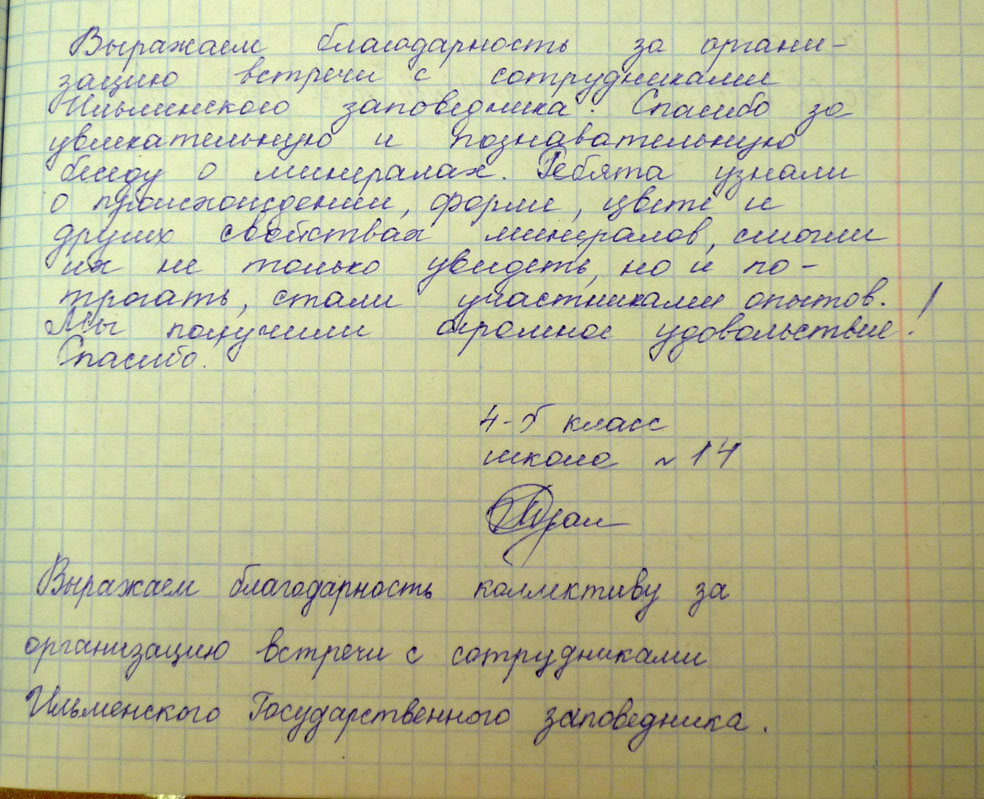 Выражаем благодарность за органи-
зацию встречи с сотрудниками
Ильменского заповедника. Спасибо за
увлекательную и познавательную
беседу о минералах. Ребята узнали
о происхождении, форме, цвете и
других свойствах минералов, смогли
их не только увидеть, но и по-
трогать, стали участниками опытов.
Мы получили огромное удовольствие!
Спасибо.
4-б класс
школа № 14
Выражаем благодарность коллективу за
организацию встречи с сотрудниками
Ильменского Государственного заповедника.